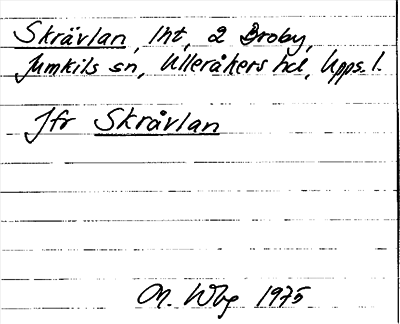 Skrävlan, Iht, 2 Broby,
Jumkils sn, Ulleråkers hd, Upps. l.
Jfr Skråvlan
M. Wbg 1975